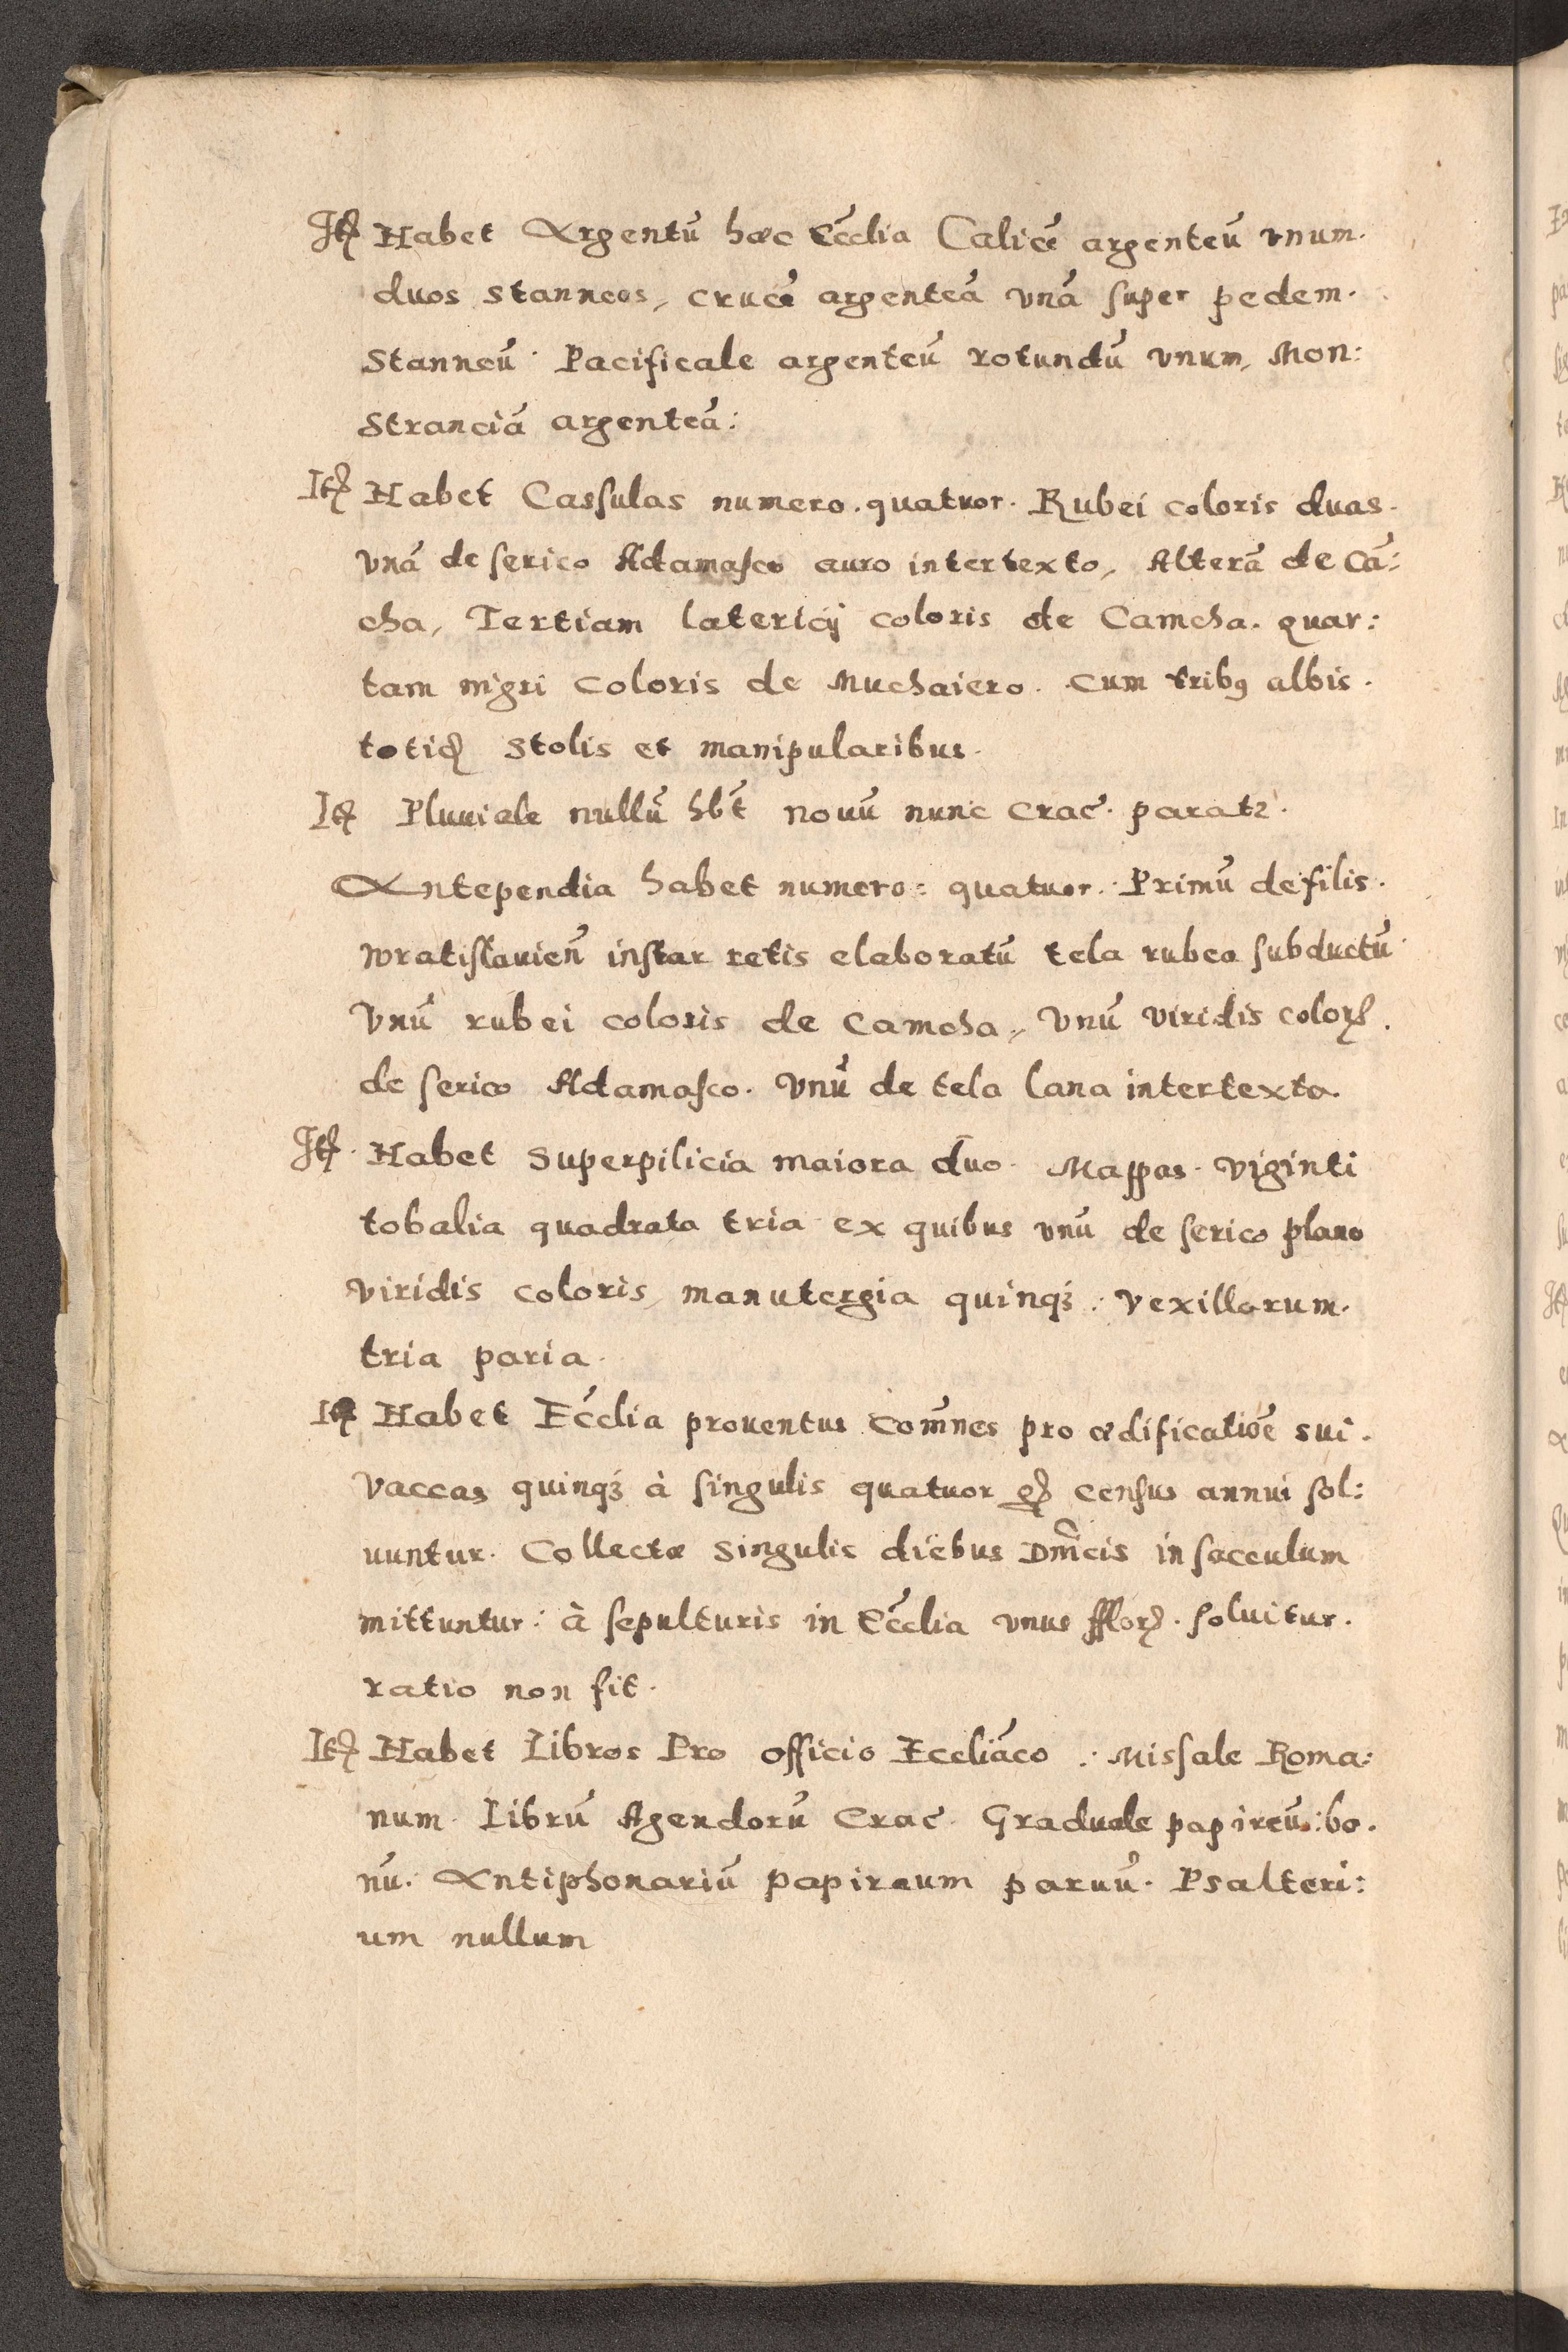 Itẽ Habet Argentũ hæc Ecclia Calicẽ argenteũ vnum.
duos stanneos, crucẽ argenteã vnã super pedem.
Stanneũ. Pacificale argenteũ rotundũ vnum, Mon:
Stranciã argenteã:
Itẽ Habet Casſulas numero. quatuor. Rubei coloris duas.
vnã de ſerico Adamaſco auro intertexto, Alterã de Cã:
cha, Tertiam latericij coloris de Camcha. quar:
tam nigri coloris de Muchaiero. cum tribꝯ albis.
totidẽ stolis et manipularibus.
Itẽ Pluuiale nullũ hb̃t nouũ nunc Crac̃. parat².
Antependia habet numero: quatuor. Primũ de filis.
wratiſlauieñ inſtar retis elaboratũ tela rubea ſubductũ
Vnũ rubei coloris de Camcha, Vnũ viridis colorꝭ.
de ſerico Adamaſco. Vnũ de tela lana intertexta.
Itẽ. Habet Superpilicia maiora duo. Mappas. viginti
tobalia quadrata tria ex quibus vnũ de ſerico plano
viridis coloris, manutergia quinqꝫ. vexillorum.
tria paria.
Itẽ Habet Ecclia prouentus com̃nes pro ædificatiõe sui.
Vaccas quinqꝫ à ſingulis quatuor gꝭ cenſus annui ſol:
uuntur. Collectæ Singulis diebus Dm̃cis in ſacculum
mittuntur: à ſepulturis in Ecclia vnus fflorꝭ. ſoluitur.
ratio non fit.
Itẽ Habet Libros Pro officio Eccliãco .: Misſale Roma:
num. Librũ Agendorũ Crac̃. Graduale papireũ: bo.
nũ. Antiphonariũ papireum paruũ. Psalteri:
um nullum